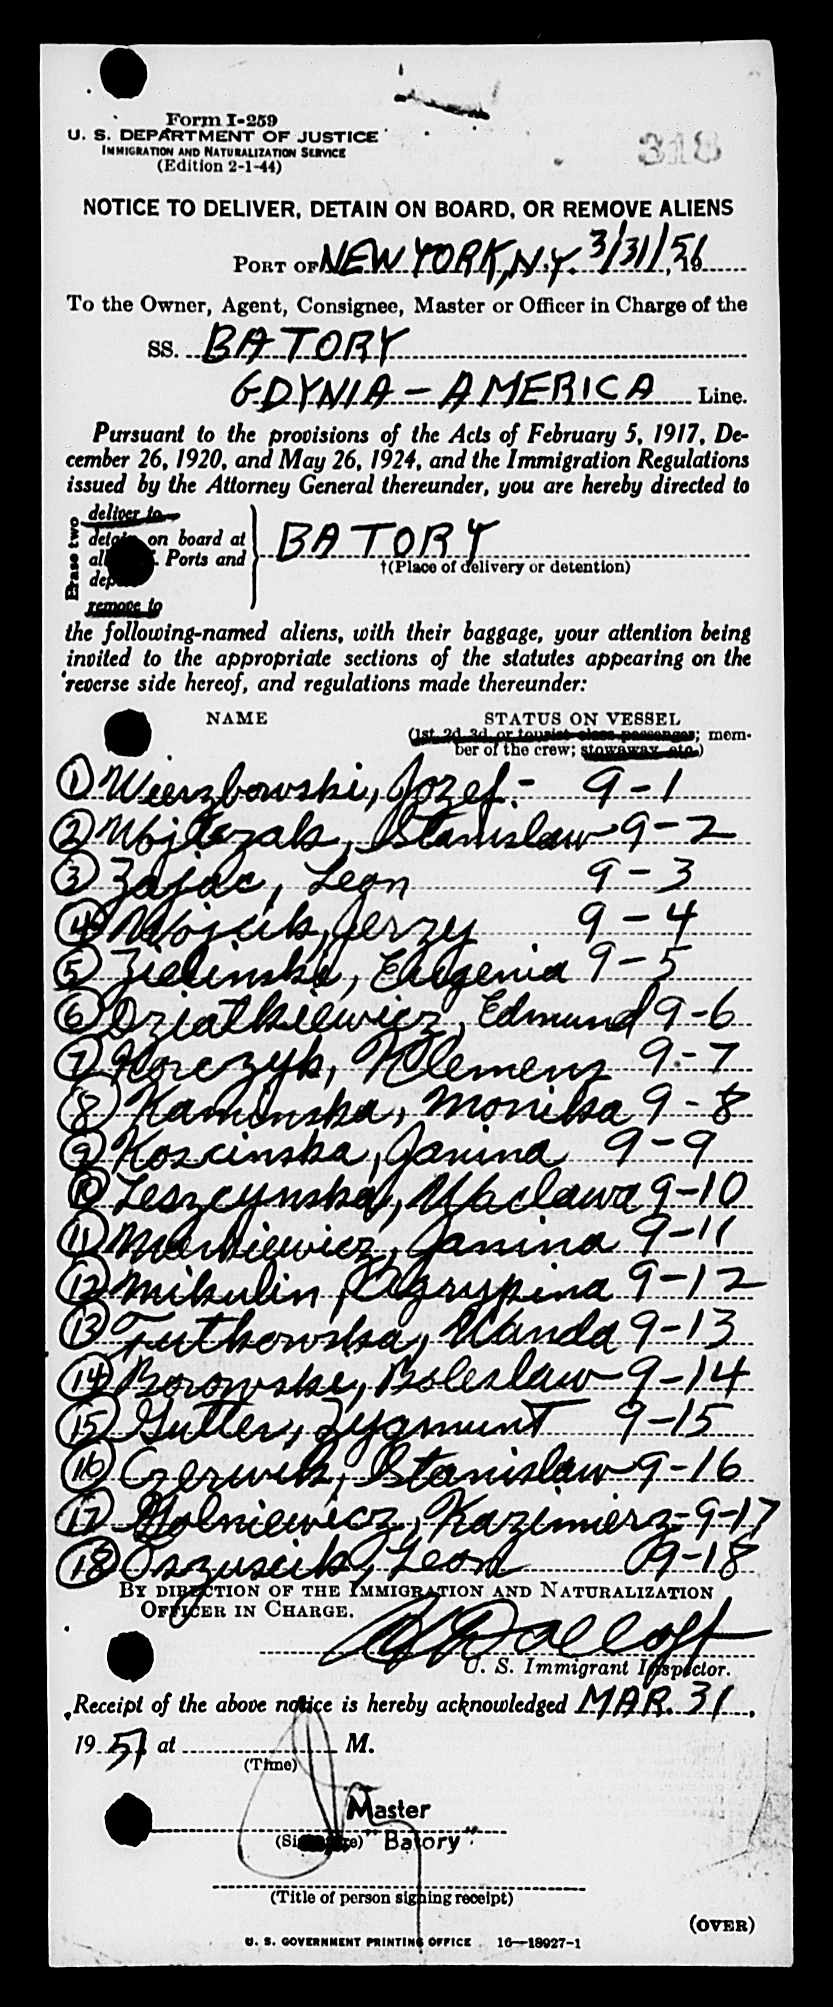 Form I-259
U. S. DEPARTMENT OF JUSTICE
IMMIGRATION AND NATURALIZATION SERVICE
(Edition 2-1-44)
318
NOTICE TO DELIVER, DETAIN ON BOARD, OR REMOVE ALIENS
PORT OF NEW YORK, N.Y. 3/31/51, 19
To the Owner, Agent, Consignee, Master or Officer in Charge of the
SS. BATORY
GDYNIA - AMERICA Line.
Pursuant to the provisions of the Acts of February 5, 1917, De-
cember 26, 1920, and May 26, 1924, and the Immigration Regulations
issued by the Attorney General thereunder, you are hereby directed to
Erase two
deliver to
detain on board at
all Ports and
remove to
BATORY
†(Place of delivery or detention)
the following-named aliens, with their baggage, your attention being
invited to the appropriate sections of the statutes appearing on the
reverse side hereof, and regulations made thereunder:
NAME STATUS ON VESSEL
(1st, 2d, 3d, or tourist class passenger; mem-
ber of the crew; stowaway, etc.)
1 Wierzbowski, Jozef.- 9-1
2 Wojtczak, Stanislaw 9-2
3 Zajac, Leon 9-3
4 Wojcik, Jerzy 9-4
5 Zielinska, Eugenia 9-5
6 Dziatkiewicz, Edmund 9-6
7 Korczyk, Klemens 9-7
8 Kaminska, Monika 9-8
9 Koscinska, Janina 9-9
10 Leszcynska, Waclawa 9-10
11 Markiewicz, Janina 9-11
12 Mikulin, Agrypina 9-12
13 Tutkowska, Wanda 9-13
14 Borowski, Boleslaw 9-14
15 Gutter, Zygmunt 9-15
16 Czerwik, Stanislaw 9-16
17 Kazimierz 9-17
18 Oszuscik, Leon 9-18
BY DIRECTION OF THE IMMIGRATION AND NATURALIZATION
OFFICER IN CHARGE.
U. S. Immigrant Inspector.
Receipt of the above notice is hereby acknowledged MAR. 31,
1951 at M.
(Time)
Master
(Signature) "Batory"
(Title of person signing receipt)
(OVER)
U. S. GOVERNMENT PRINTING OFFICE 16—18927-1